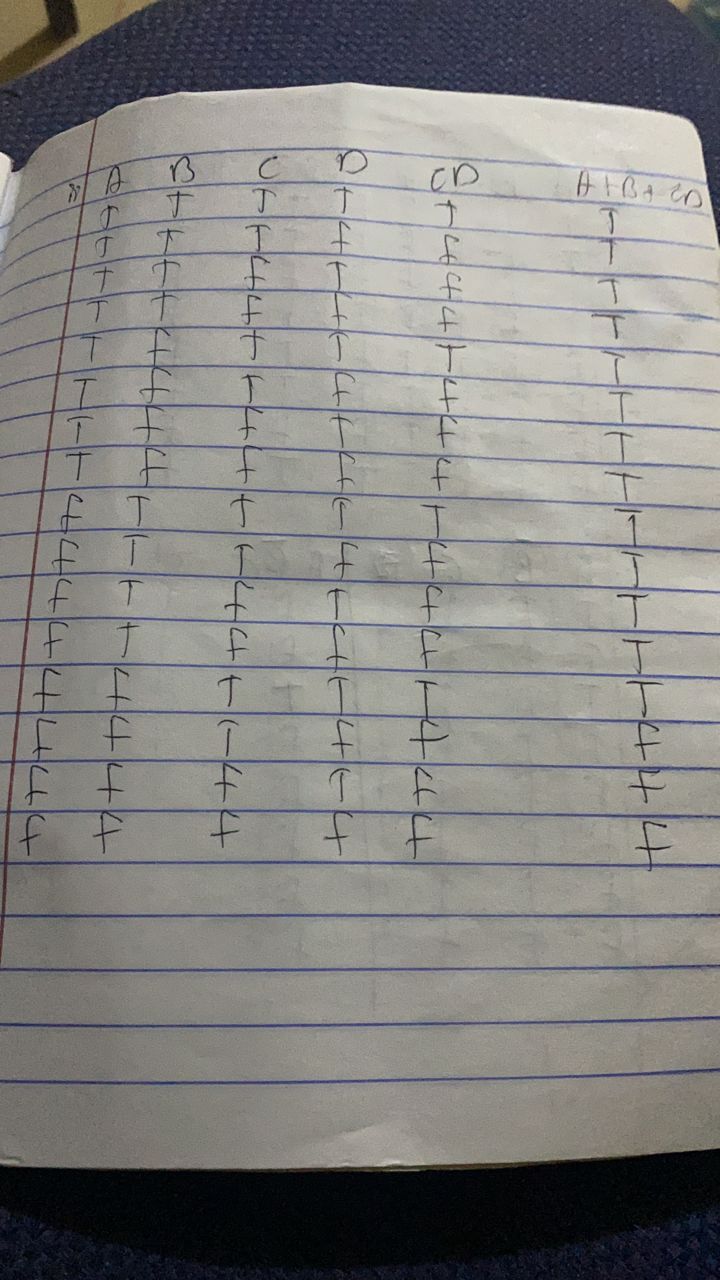 A B C D CD A+B+CD
T T T T T T
T T T f f T
T T f T f T
T T f f f T
T f T T T T
T f T f f T
T f f T f T
T f f f f T
f T T T T T
f T T f f T
f T f T f T
f T f f f T
f f T T T T
f f T f f f
f f f T f f
f f f f f f